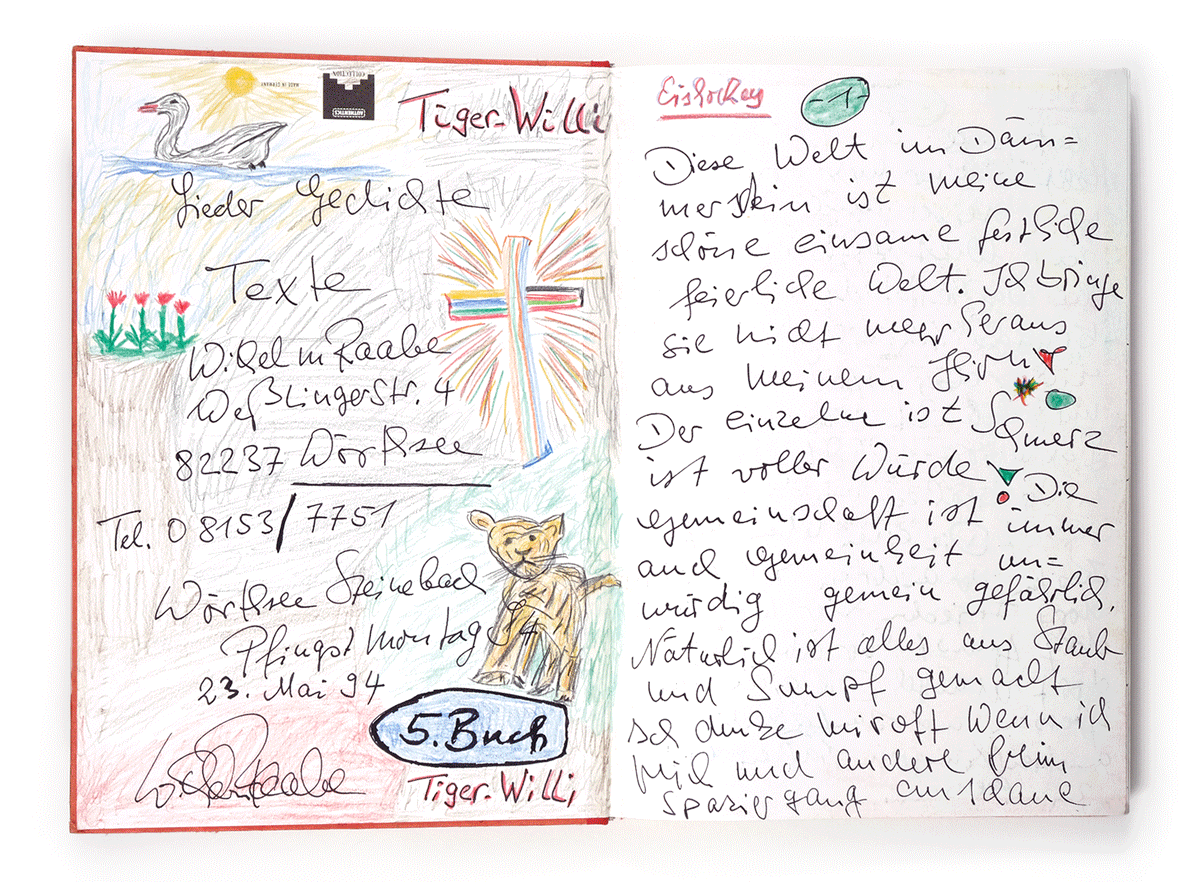 MADE IN GERMANY
COLLECTION
AUTHENTICS
Tiger-Willi
Lieder Gedichte
Texte
Wilhelm Raabe
Weßlingerstr. 4
82237 Wörthsee
Tel. 08153/7751
Wörthsee Steinebach
Pfingstmontag 94
23. Mai 94
5. Buch
Tiger-Willi
Eishockey -1-
Diese Welt im Däm=
merschein ist meine
schöne einsame festliche
feierliche Welt. Ich bringe
sie nicht mehr heraus
aus meinem Hirn
Der einzelne ist Schmerz
ist voller Würde! Die
Gemeinschaft ist immer
auch Gemeinheit un=
würdig gemein gefährlich.
Natürlich ist alles aus Staub
und Sumpf gemacht
Ich denke mir oft wenn ich
mich und andere beim
Spaziergang anschaue